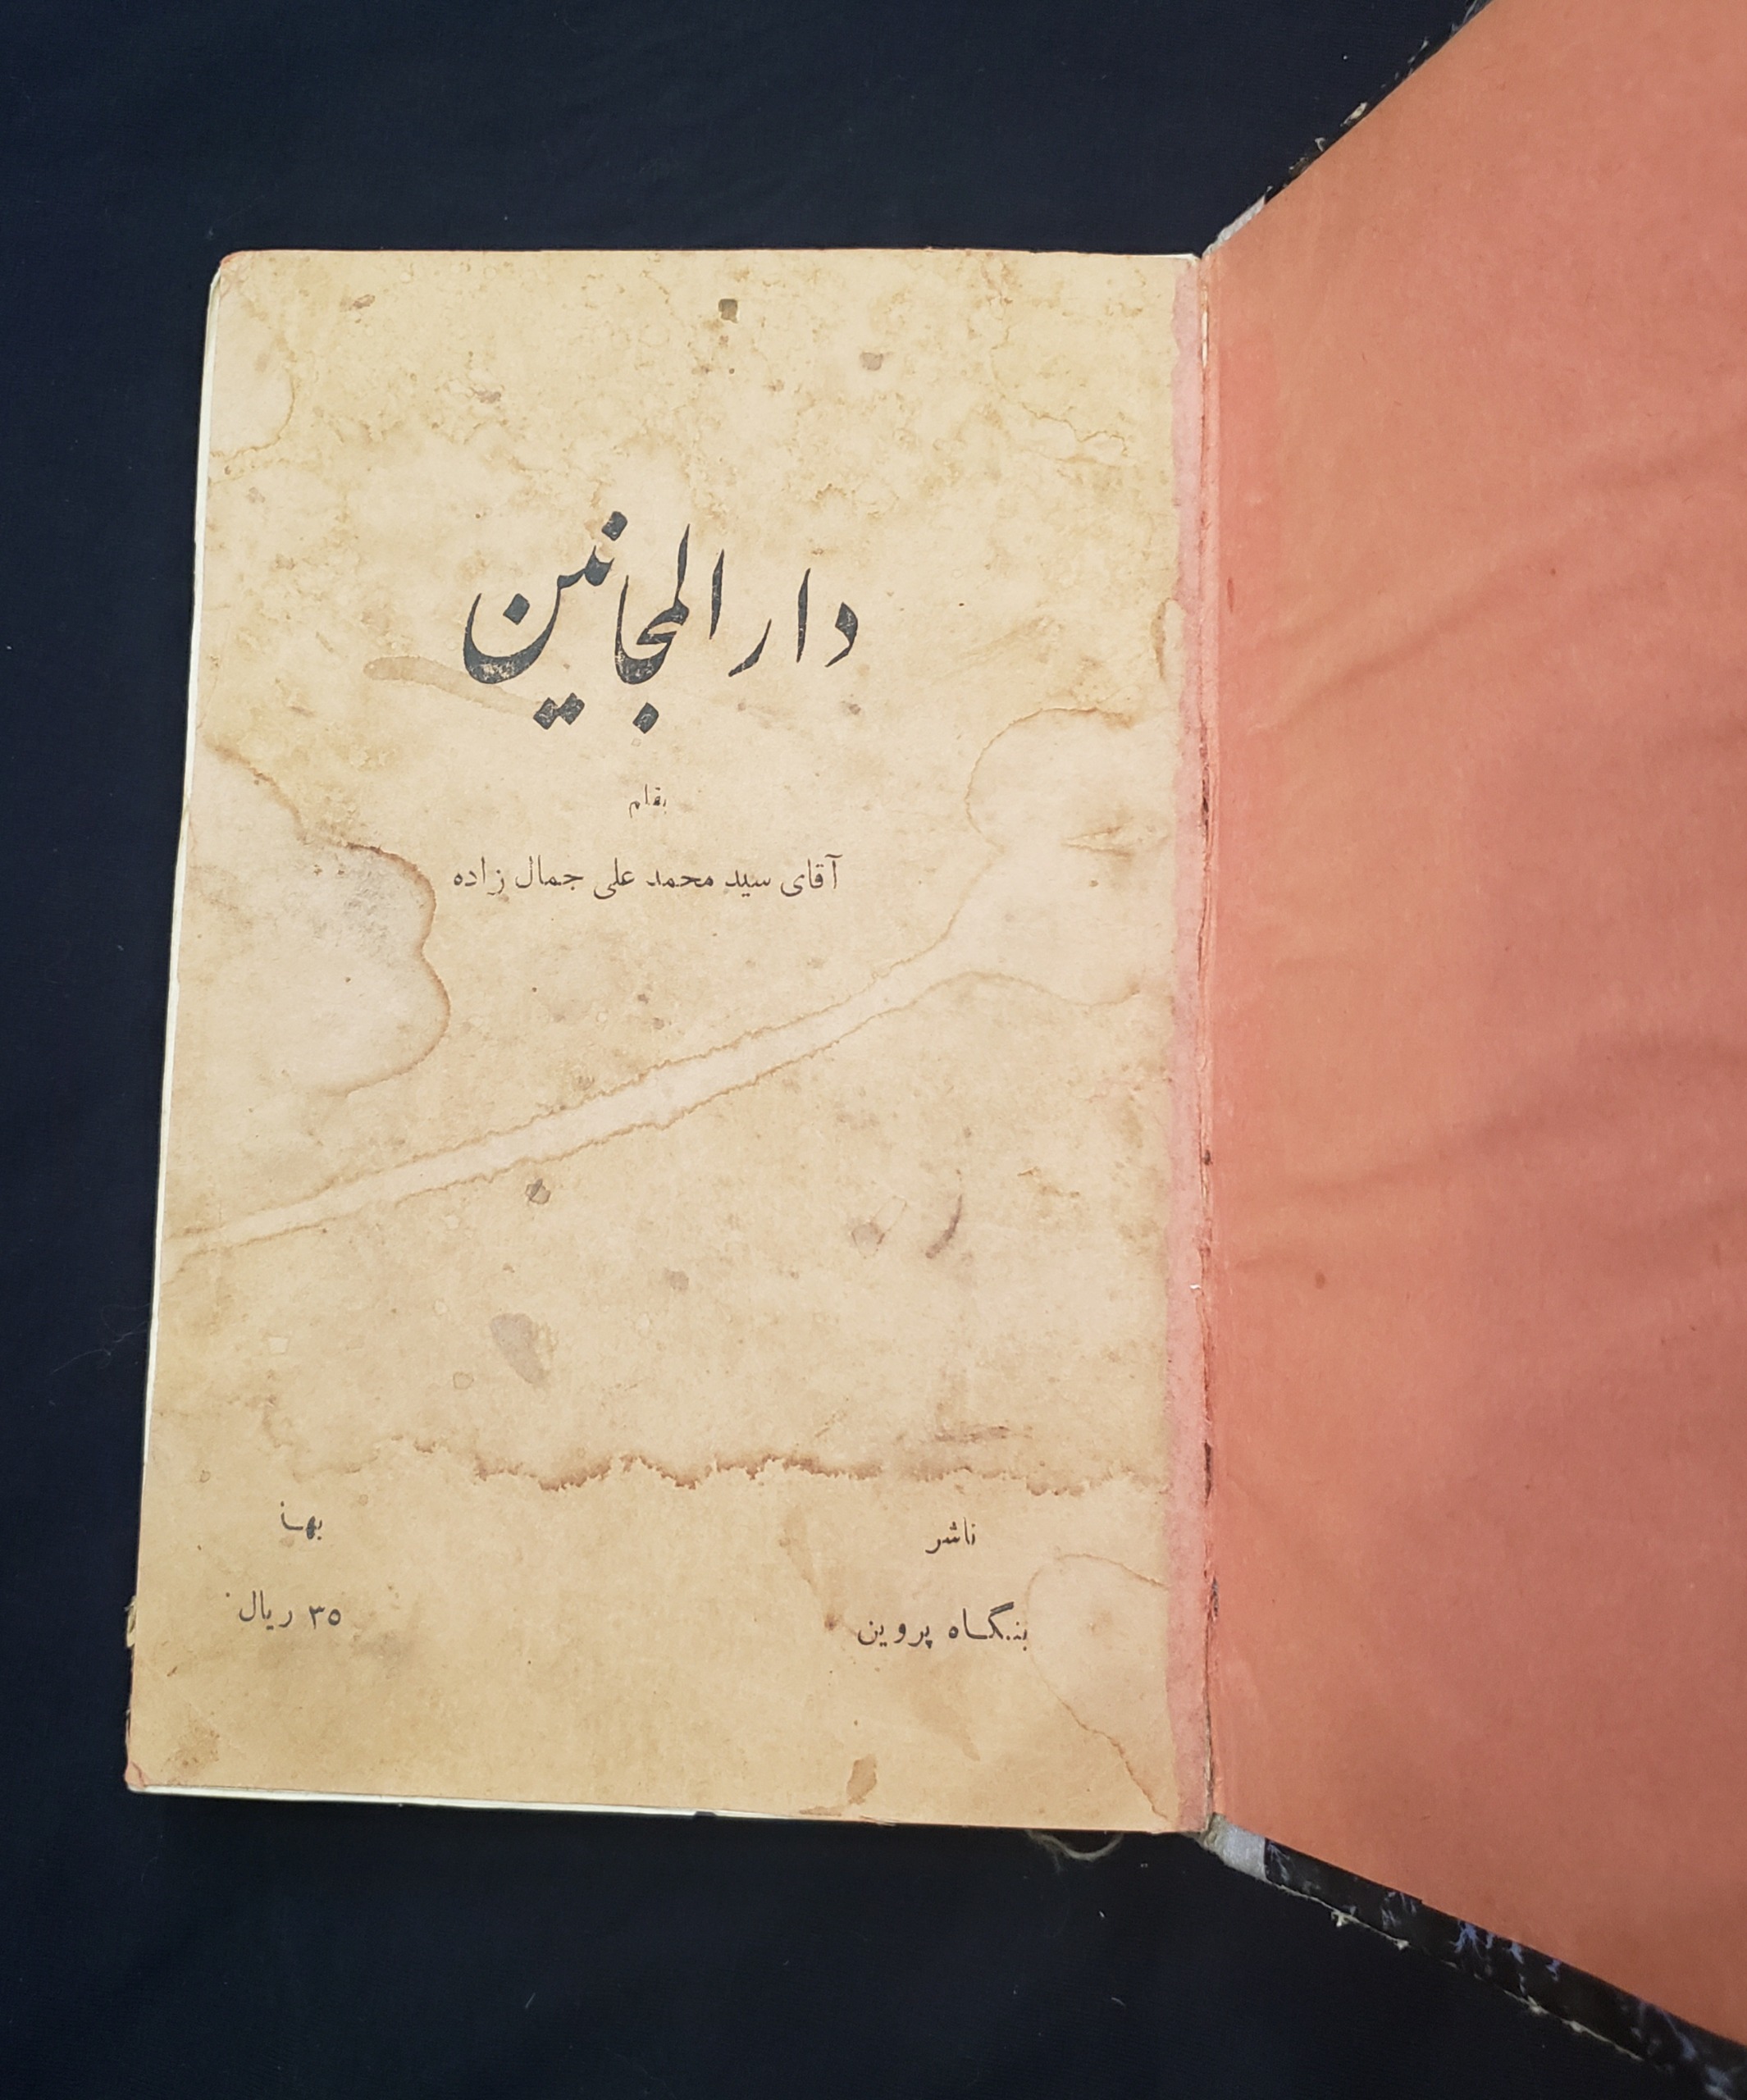 دارالمجانین
بقلم
آقای سید محمد علی جمال زاده
ناشر
بنگاه پروین
بها
۳۵ ریال